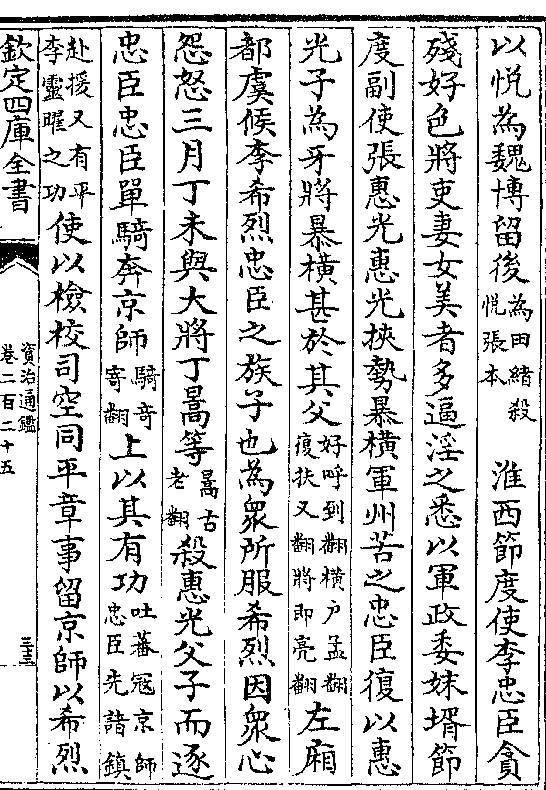 以悦為魏博留後為田緒殺悦張本　淮西節度使李忠臣貪
殘好色將吏妻女美者多逼淫之悉以軍政委妹壻節
度副使張惠光惠光挾勢暴橫軍州苦之忠臣復以惠
光子為牙將暴橫甚於其父好呼到翻橫户孟翻復扶又翻將即亮翻左廂
都虞候李希烈忠臣之族子也為衆所服希烈因衆心
怨怒三月丁未與大將丁暠等暠古老翻殺惠光父子而逐
忠臣忠臣單騎奔京師騎奇寄翻上以其有功吐蕃寇京師忠臣先諸鎮
赴援又有平李靈曜之功使以檢校司空同平章事留京師以希烈
欽定四庫全書
資治通鑑
卷二百二十五
三十三